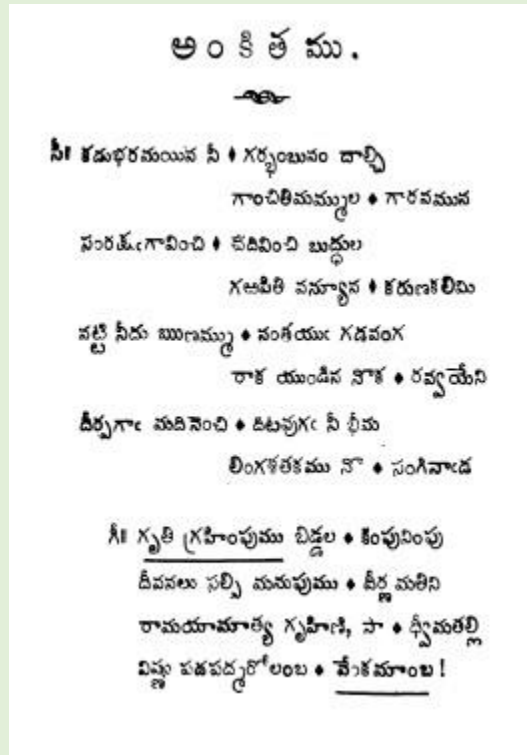 అంకితము.
సీ॥ కడుభరమయిన నీ ♦ గర్భంబునం దాల్చి
గాంచితిమమ్ముల ♦ గారవమున
సంరక్షఁగావించి ♦ చదివించి బుద్ధుల
గఱపితి వన్యూన ♦ కరుణకలిమి
నట్టి నీదు ఋణమ్ము నంతయుఁ గడవంగ
రాక యుండిన నొక ♦ రవ్వయేని
దీర్పగాఁ మదినెంచి ♦ దిటవుగఁ నీ భీమ
లింగశతకము నొ ♦ సంగినాఁడ
గీ॥ గృతి గ్రహింపుము బిడ్డల ♦ కింపునింపు
దీవనలు సల్పి మనుపుము ♦ దీర్ణ మతిని
రామయామాత్య గృహిణి, సా ♦ ధ్వీమతల్లి
విష్ణు పదపద్మరోలంబ ♦ వేంకమాంబ!